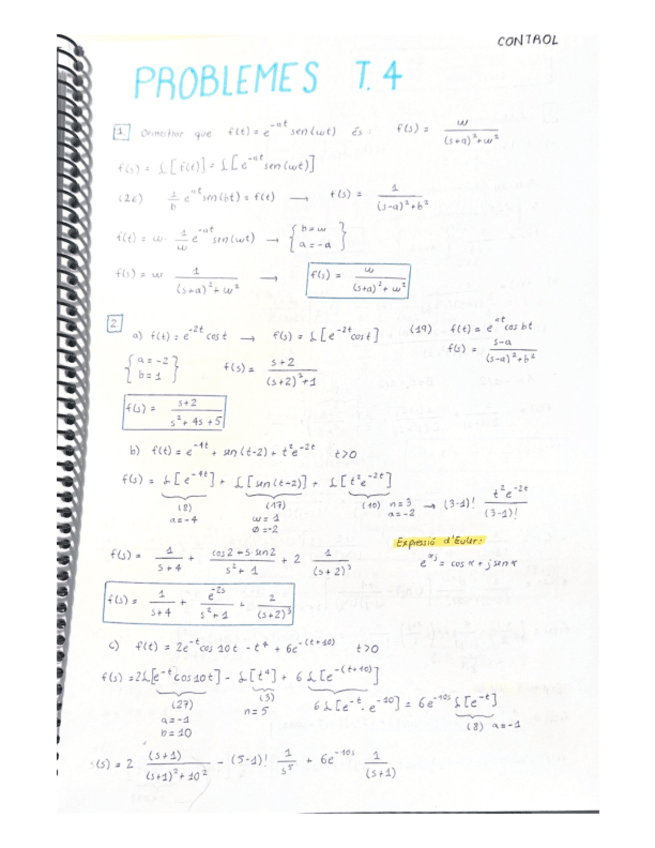 CONTROL
PROBLEMES T.4
1 Demostrar que f(t) = e^-at sen(wt) és: f(s) = w / ((s+a)²+w²)
f(s) = L[f(t)] = L[e^-at sen(wt)]
(26) 1/b e^at sen(bt) = f(t) → f(s) = 1 / ((s-a)²+b²)
f(t) = w · 1/w e^-at sen(wt) → { b=w a=-a }
f(s) = w 1 / ((s+a)²+w²) → f(s) = w / ((s+a)²+w²)
2
a) f(t) = e^-2t cos t → f(s) = L[e^-2t cos t] (19) f(t) = e^at cos bt
f(s) = (s-a) / ((s-a)²+b²)
{ a=-2 b=1 } f(s) = (s+2) / ((s+2)²+1)
f(s) = (s+2) / (s²+4s+5)
b) f(t) = e^-4t + sen(t-2) + t²e^-2t t>0
f(s) = L[e^-4t] + L[sen(t-2)] + L[t²e^-2t]
(8) a=-4 (17) w=1 ø=-2 (10) n=3 a=-2 → (3-1)! t²e^-2t / (3-1)!
Expressió d'Euler:
e^αj = cos α + j sen α
f(s) = 1/(s+4) + (cos2+s·sen2)/(s²+1) + 2 1/(s+2)³
f(s) = 1/(s+4) + e^-2s/(s²+1) + 2/(s+2)³
c) f(t) = 2e^-t cos 10t - t⁴ + 6e^-(t+10) t>0
f(s) = 2L[e^-t cos 10t] - L[t⁴] + 6 L[e^-(t+10)]
(27) a=-1 b=10 (3) n=5 6L[e^-t · e^-10] = 6e^-10s L[e^-t]
(8) a=-1
(s) = 2 (s+1) / ((s+1)²+10²) - (5-1)! 1/s⁵ + 6e^-10s 1/(s+1)